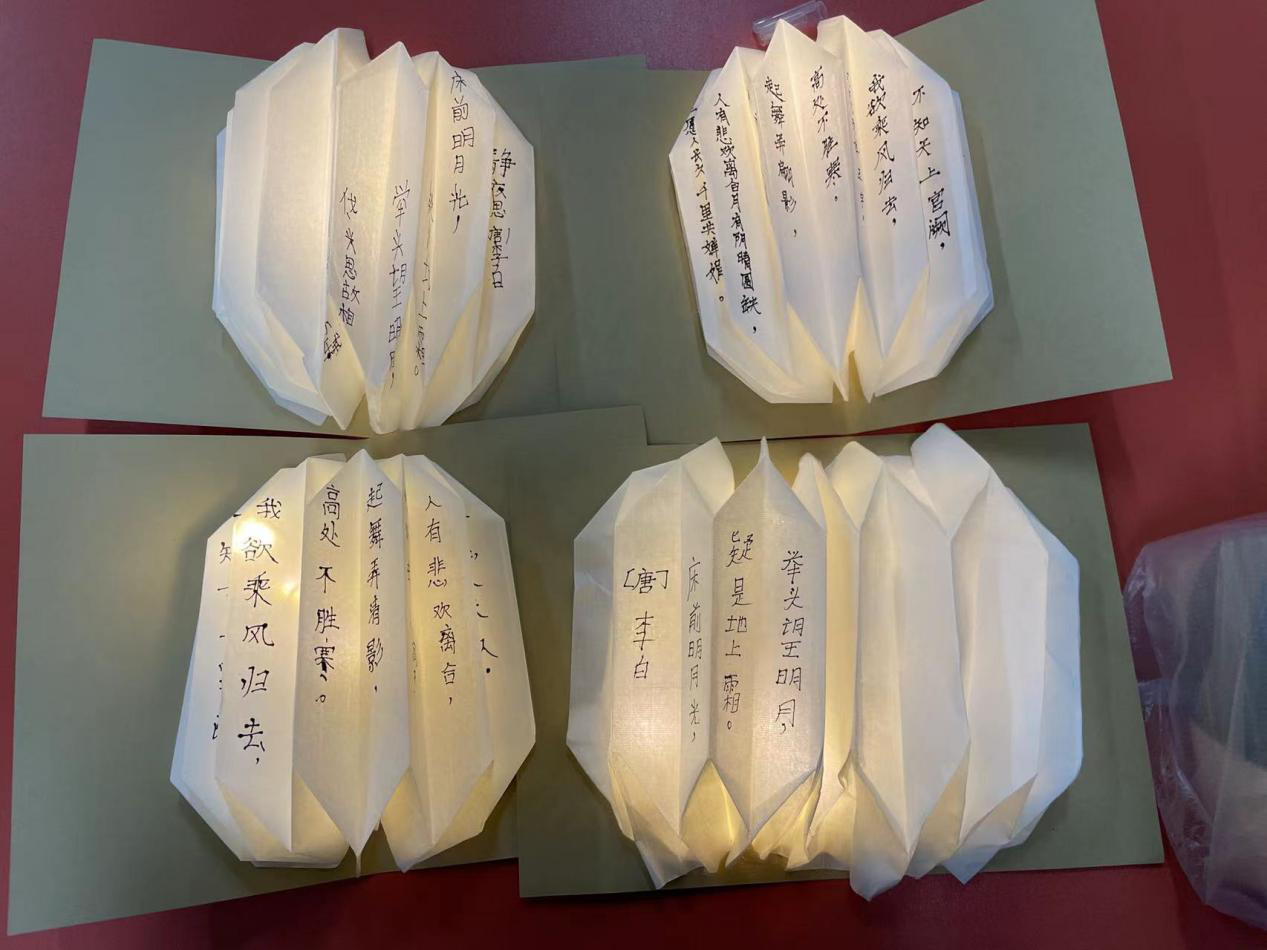 静夜思 唐李白
床前明月光，
上霜。
举头望明月，
头思故
不知天上宫阙，
我欲乘风归去，
高处不胜寒。
起舞弄影，
人有悲欢离合月有阴晴圆缺，
人长久千里共婵娟。
知
我欲乘风归去，
高处不胜寒。
起舞弄清影，
人有悲欢离合，
[唐]李白
床前明月光，
疑是地上霜。
举头望明月，